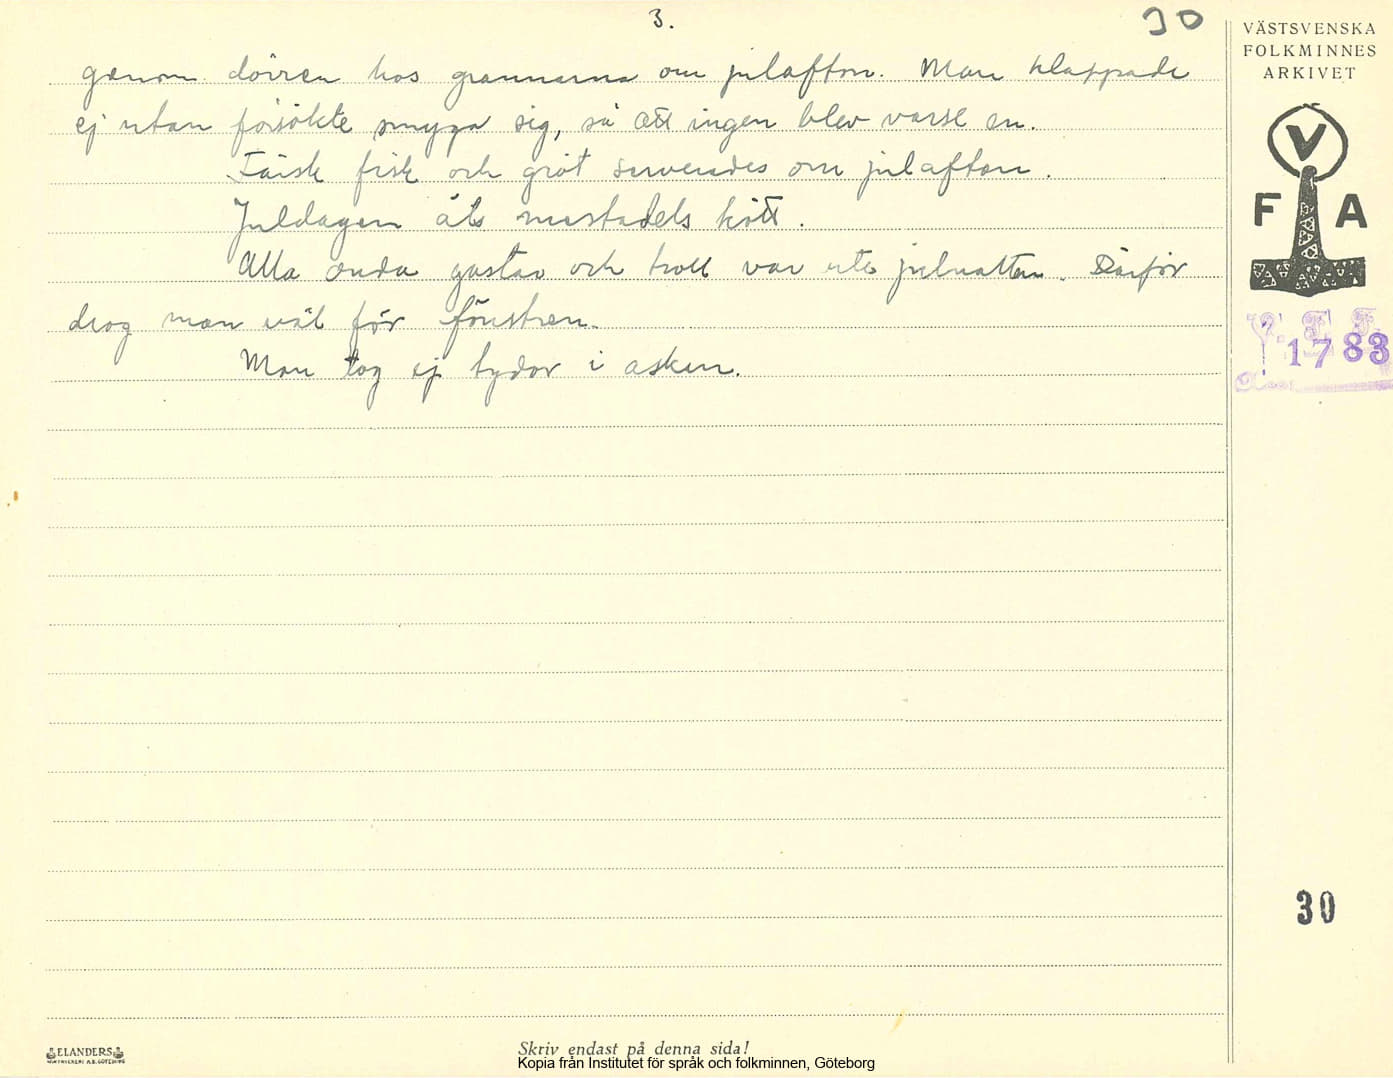 3.
30
genom dörren hos grannarna om julafton. Man klappade
ej utan försökte smyga sig, så att ingen blev varse en.
Färsk fisk och gröt serverades om julafton.
Juldagen åts mestadels kött.
Alla onda gastar och troll var ute julnatten. Därför
drog man väl för fönstren.
Man tog ej tydor i asken.
VÄSTSVENSKA
FOLKMINNES
ARKIVET
V
F A
V. F. F.
1783
30
ELANDERS
Skriv endast på denna sida!
Kopia från Institutet för språk och folkminnen, Göteborg